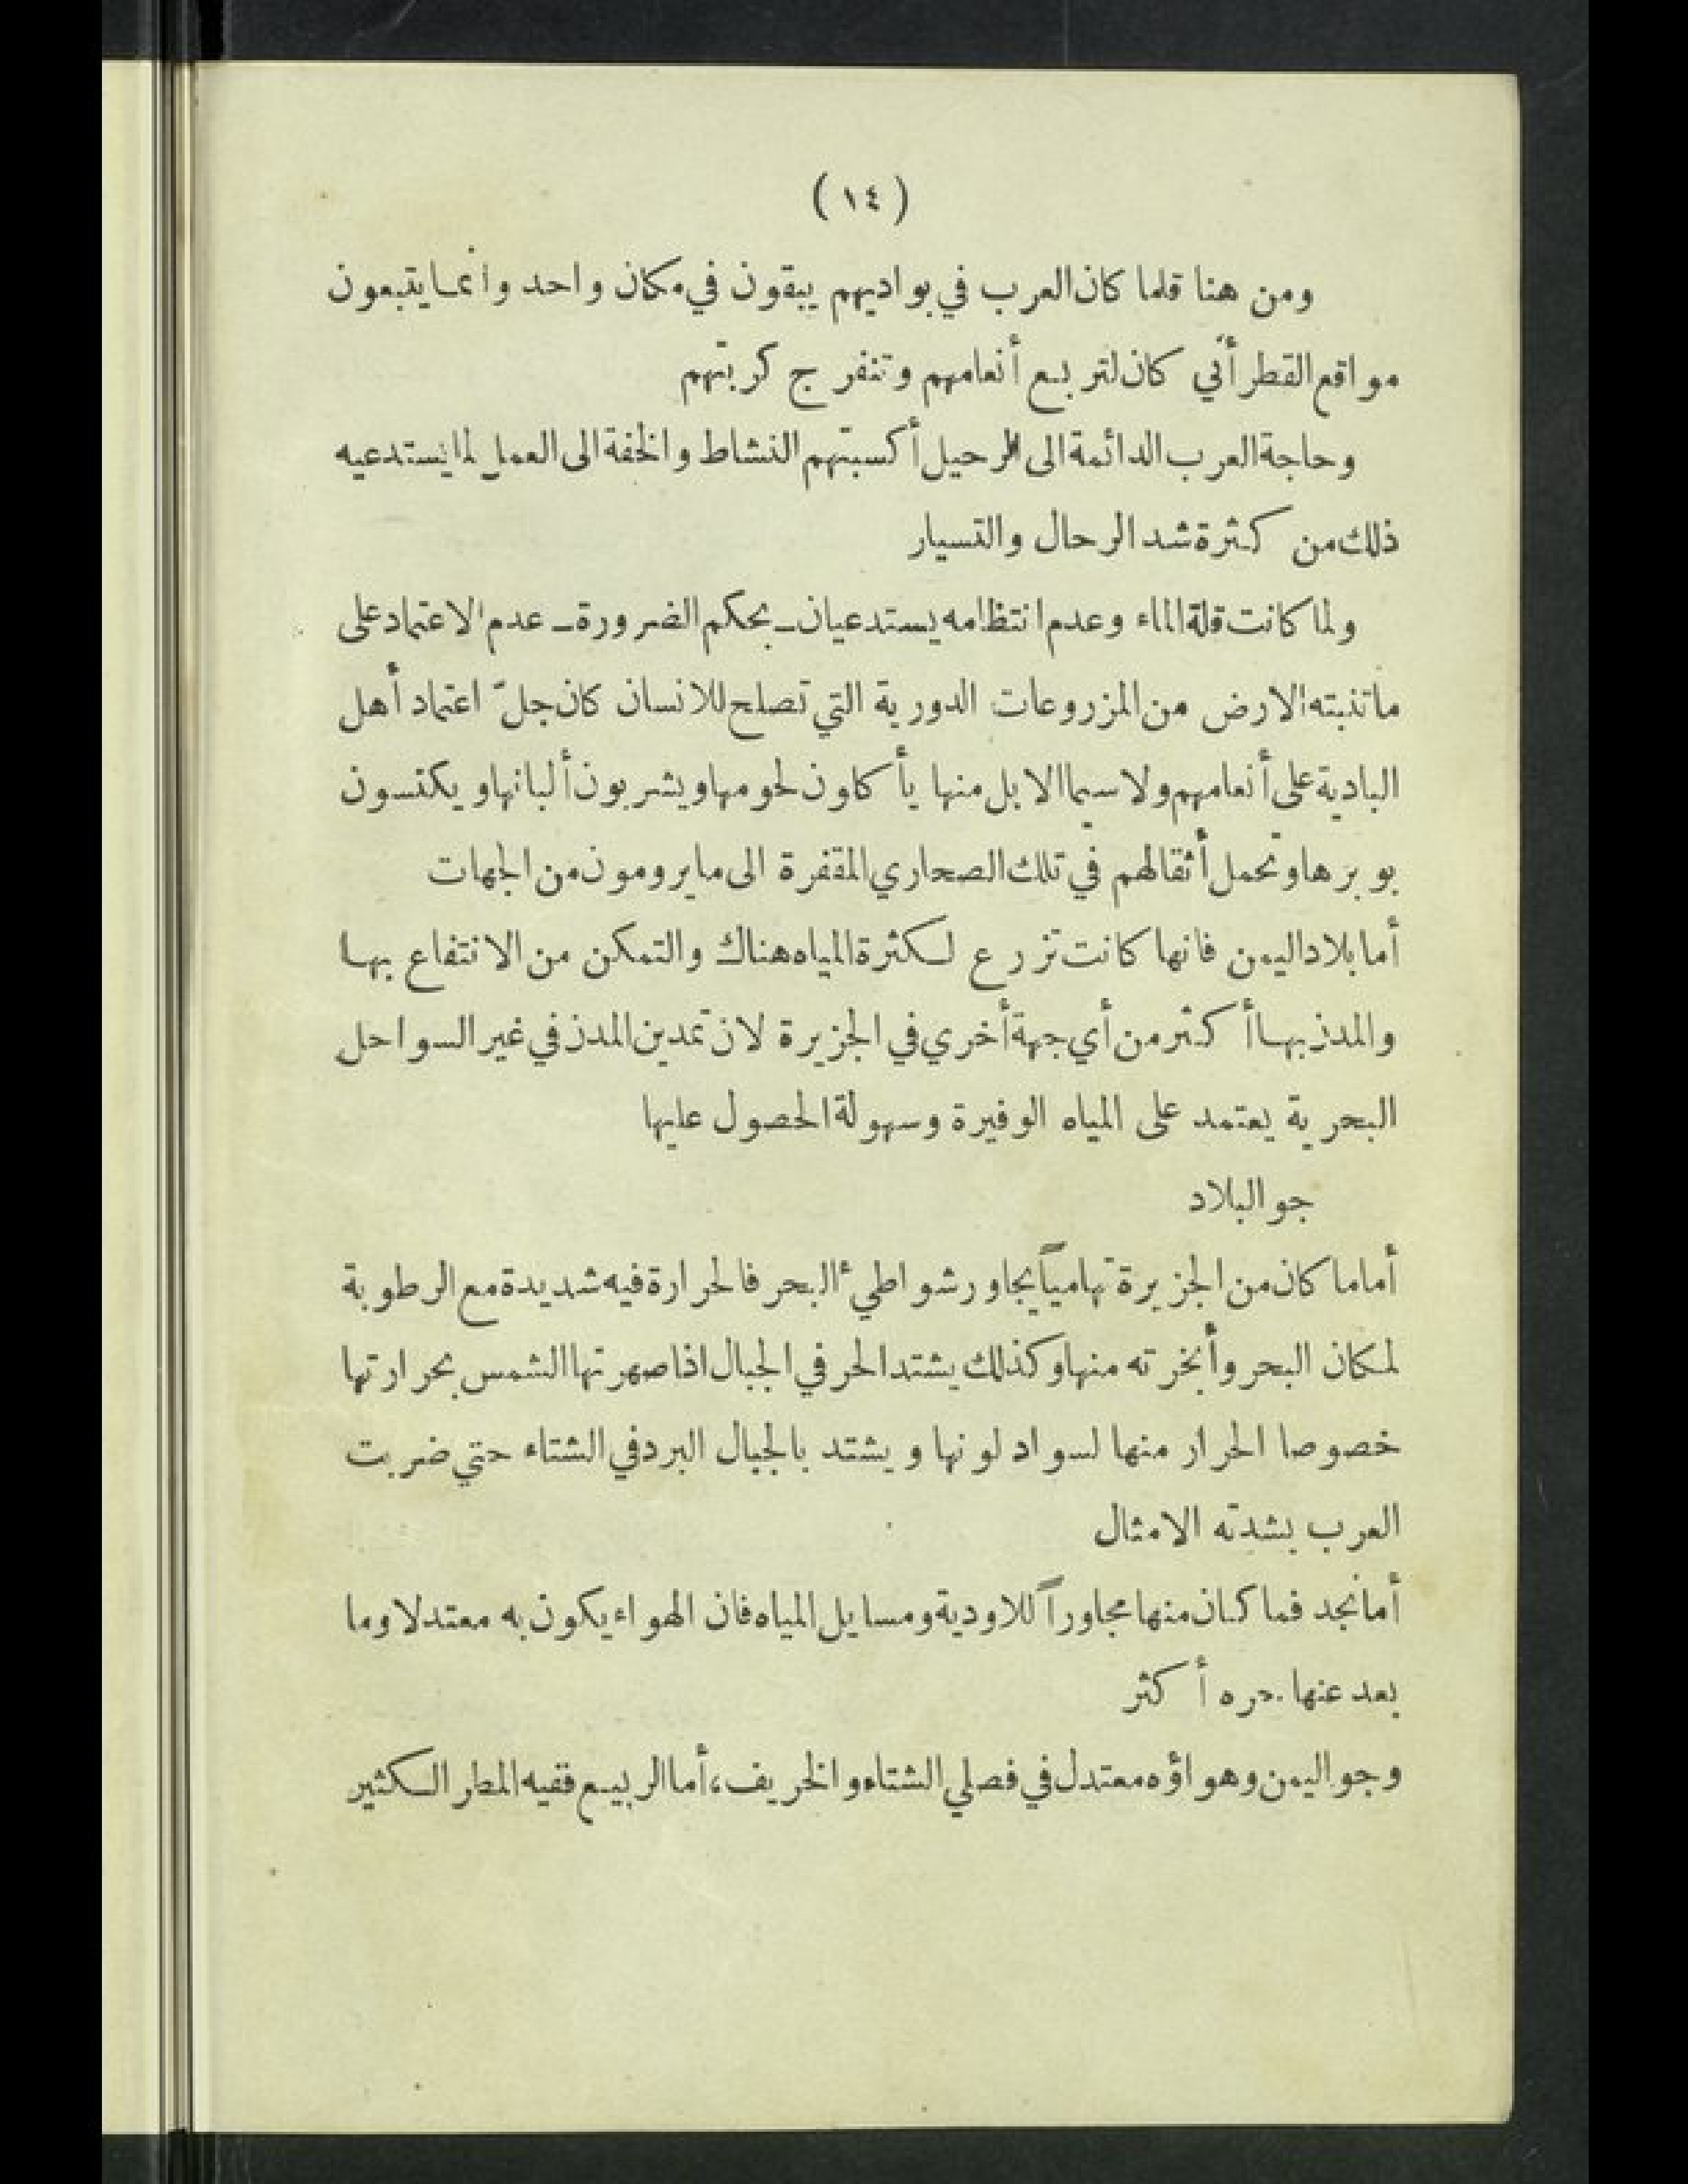 ( ١٤ )
ومن هنا قلما كان العرب في بواديهم يبقون في مكان واحد وانما يتبعون
مواقع القطر أنّي كان لتربع أنعامهم وتنفرج كربتهم
وحاجة العرب الدائمة الى الرحيل أكسبتهم النشاط والخفة الى العمل لما يستدعيه
ذلك من كثرة شد الرحال والتسيار
ولما كانت قلة الماء وعدم انتظامه يستدعيان ـ بحكم الضرورة ـ عدم الاعتماد على
ما تنبته الارض من المزروعات الدورية التي تصلح للانسان كان جلّ اعتماد أهل
البادية على أنعامهم ولا سيما الابل منها يأكلون لحومها ويشربون ألبانها ويكتسون
بوبرها وتحمل أثقالهم في تلك الصحاري المقفرة الى ما يرومون من الجهات
أما بلاد اليمن فانها كانت تزرع لكثرة المياه هناك والتمكن من الانتفاع بها
والمدن بها أكثر من أي جهة أخري في الجزيرة لان تمدين المدن في غير السواحل
البحرية يعتمد على المياه الوفيرة وسهولة الحصول عليها
جو البلاد
أما ما كان من الجزيرة تهامياً يجاور شواطيء البحر فالحرارة فيه شديدة مع الرطوبة
لمكان البحر وأبخرته منها وكذلك يشتد الحر في الجبال اذا صهرتها الشمس بحرارتها
خصوصا الحرار منها لسواد لونها ويشتد بالجبال البرد في الشتاء حتي ضربت
العرب بشدته الامثال
أما نجد فما كان منها مجاوراً للاودية ومسايل المياه فان الهواء يكون به معتدلا وما
بعد عنها حره أكثر
وجو اليمن وهواؤه معتدل في فصلي الشتاء والخريف، أما الربيع ففيه المطر الكثير